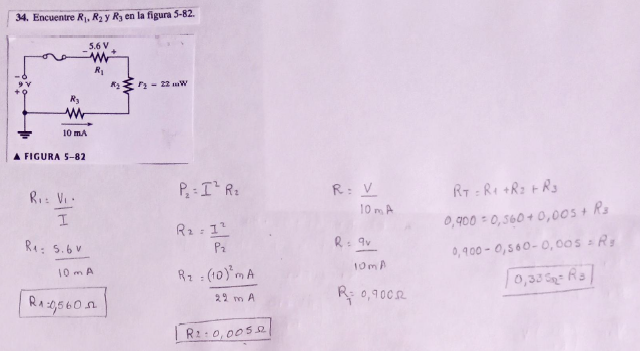 34. Encuentre R1, R2 y R3 en la figura 5-82.
- 5.6 V +
R1
-
9 V
+
R2
P2 = 22 mW
R3
10 mA
▲ FIGURA 5–82
R1 = V1.
I
R1 = 5.6 v
10 mA
R1=0,560 Ω
P2 = I² R2
R2 = I²
P2
R2 = (10)² mA
22 mA
R2 = 0,005 Ω
R = V
10 mA
R = 9v
10mA
RT = 0,900Ω
RT = R1 + R2 + R3
0,900 = 0,560 + 0,005 + R3
0,900 - 0,560 - 0,005 = R3
0,335Ω = R3